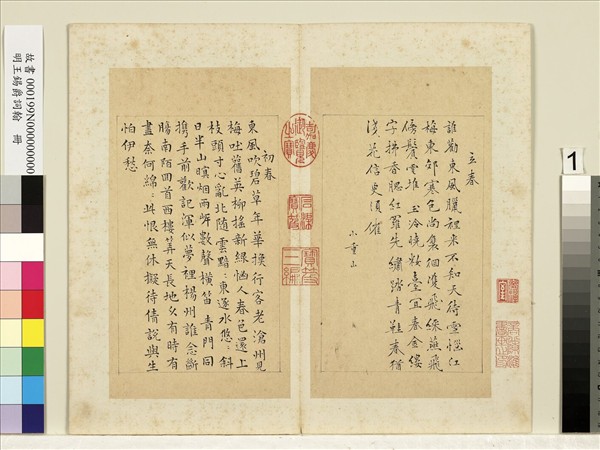 立春
誰勸東風臘裡來不知天待雪惱江
梅東郊寒色尚裴徊雙飛綵燕飛
傍鬢雲堆 玉冷曉妝臺宜春金縷
字拂香腮紅羅先繡踏青鞋春猶
淺花信更須催
小重山
嘉慶御覽之寶
石渠寶笈
寶笈三編
初春
東風吹碧草年華換行客老滄州見
梅吐舊英柳搖新綠惱人春色還上
枝頭寸心亂北隨雲黯:東逐水悠:斜
日半山暝烟兩岸數聲橫笛 青門同
携手前歡記渾似夢裡楊州誰念斷
腸南陌回首西樓算天長地久有時有
盡奈何綿:此恨無休擬待倩說與生
怕伊愁
故書 000199N000000000
明王錫爵詞翰 冊
1